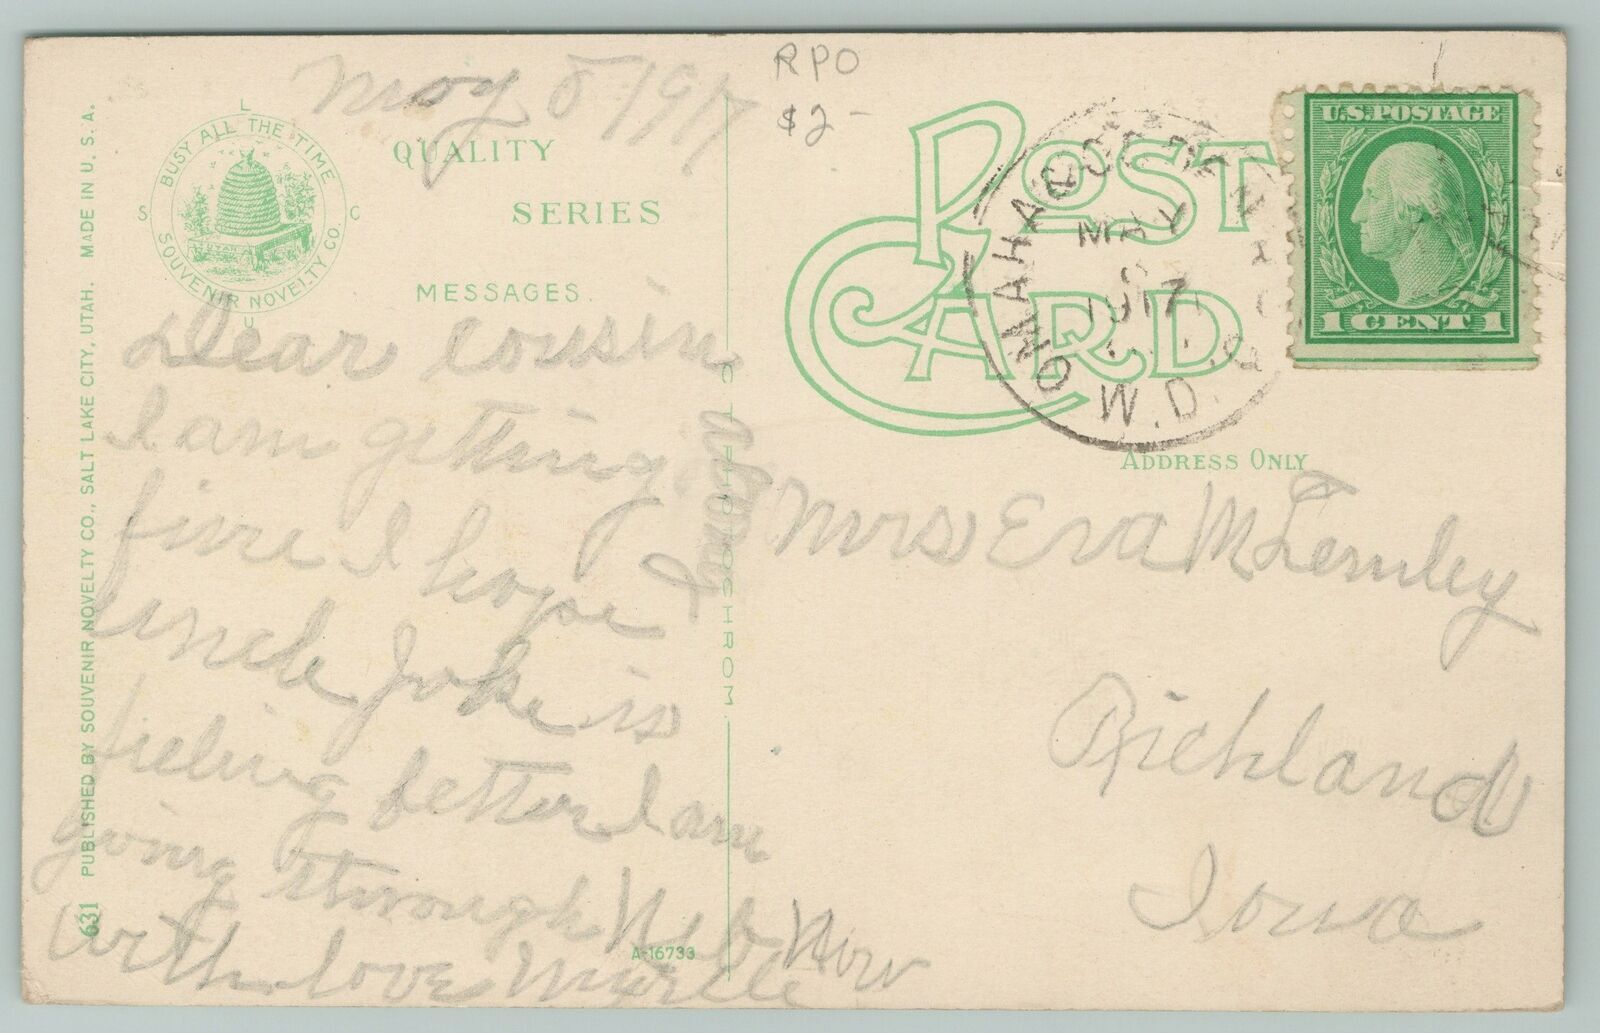 May 8 1917
RPO
$2-
BUSY ALL THE TIME
S L C U
UTAH
SOUVENIR NOVELTY CO.
QUALITY
SERIES
MESSAGES.
Dear Cousin
I am getting along
fine I hope
uncle Jake is
feeling better I am
going through Neb Now
with love
POST
CARD
OMAHA
MAY
8
1917
W.D.
U.S. POSTAGE
1 CENT 1
ADDRESS ONLY
Mrs Eva McLernley
Richland
Iowa
631 PUBLISHED BY SOUVENIR NOVELTY CO., SALT LAKE CITY, UTAH. MADE IN U. S. A.
C. T. PHOTOCHROM.
A-16733